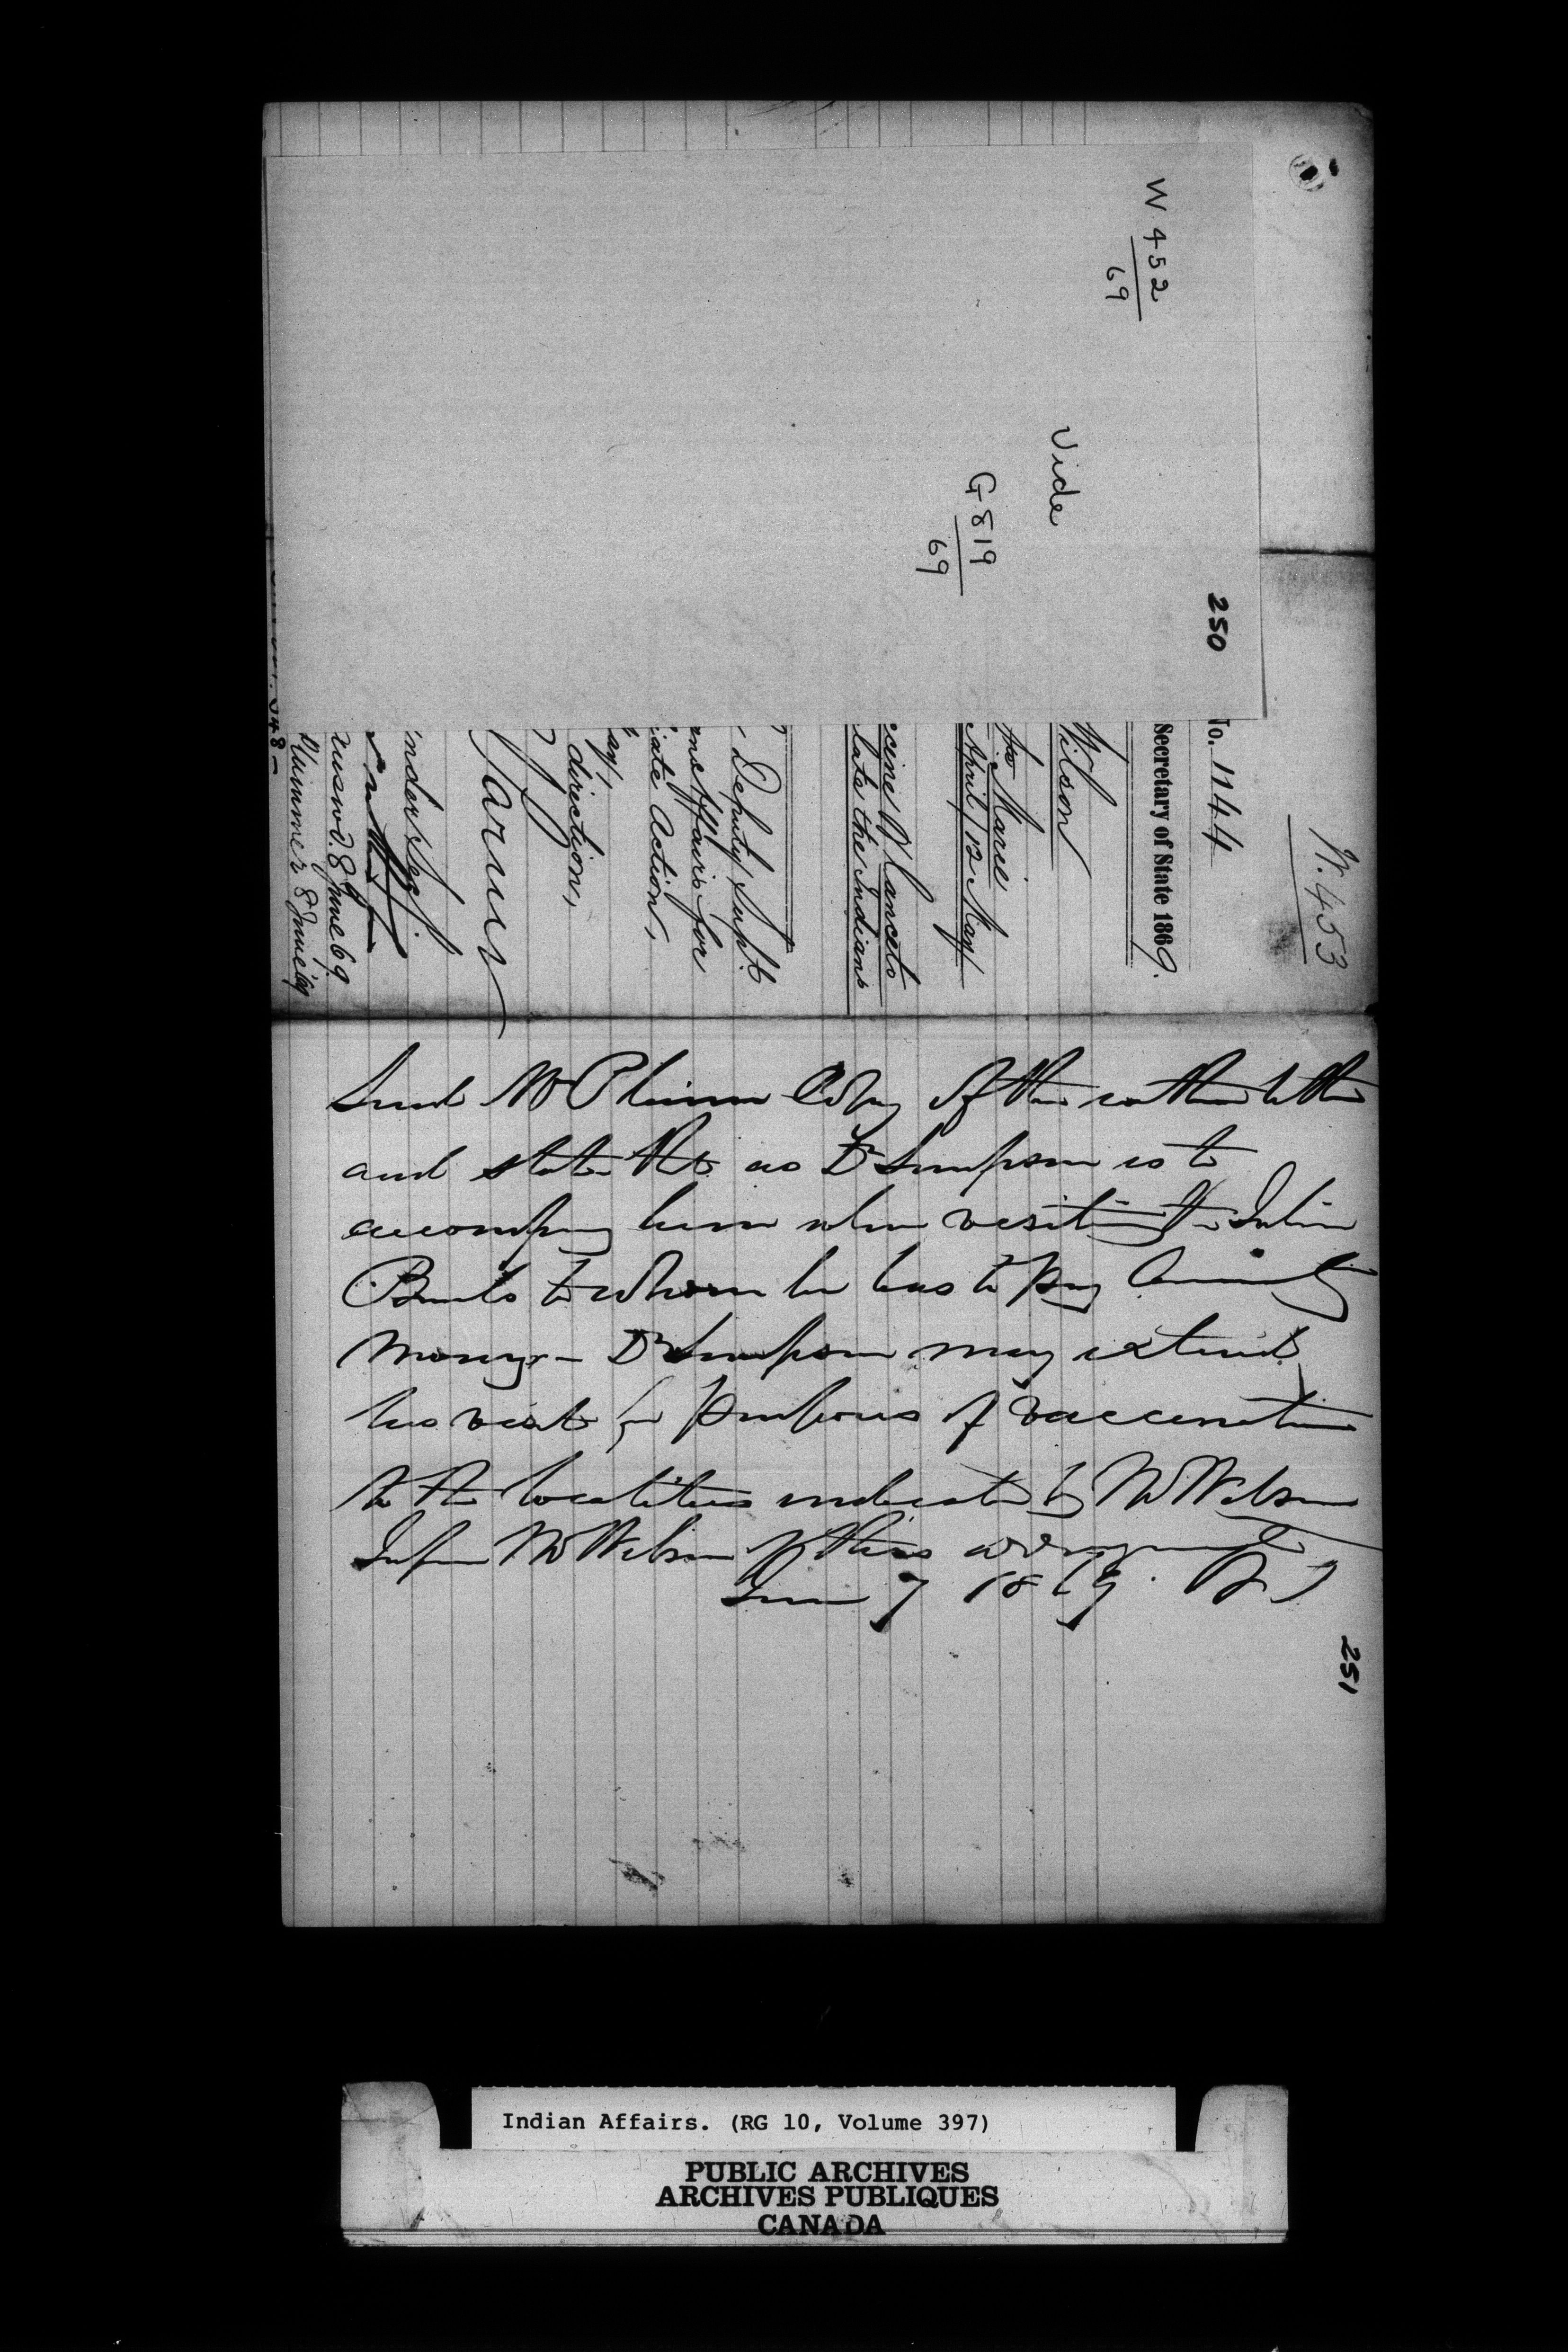 W. 453
W. 452
69
Vide
G 819
69
250
No. 1144
Secretary of State 1869.
Wilson
Marie
April/12 May
Lancets
late the Indians
Deputy Supt.
Affairs for
iate Action,
direction,
June 69
Plummer 8 June 69
Send Mr Plummer Copy of this letter
and state that as Dr Simpson is to
accompany him when visiting the Indian
Bands to whom he has to pay Annuity
money - Dr Simpson may extend
his visit for purposes of vaccination
to the localities indicated by Mr Wilson
Inform Mr Wilson of this arrangement
June 7 1869.
251
Indian Affairs. (RG 10, Volume 397)
PUBLIC ARCHIVES
ARCHIVES PUBLIQUES
CANADA